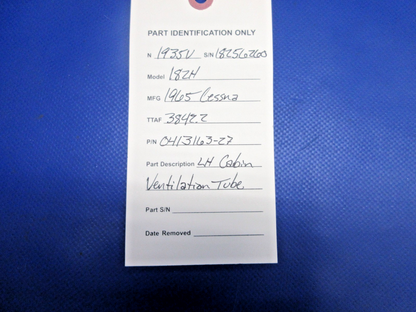 PART IDENTIFICATION ONLY
N 1935V S/N 18256260
Model 182H
MFG 1965 Cessna
TTAF 3842.2
P/N 0413163-27
Part Description LH Cabin
Ventilation Tube
Part S/N
Date Removed